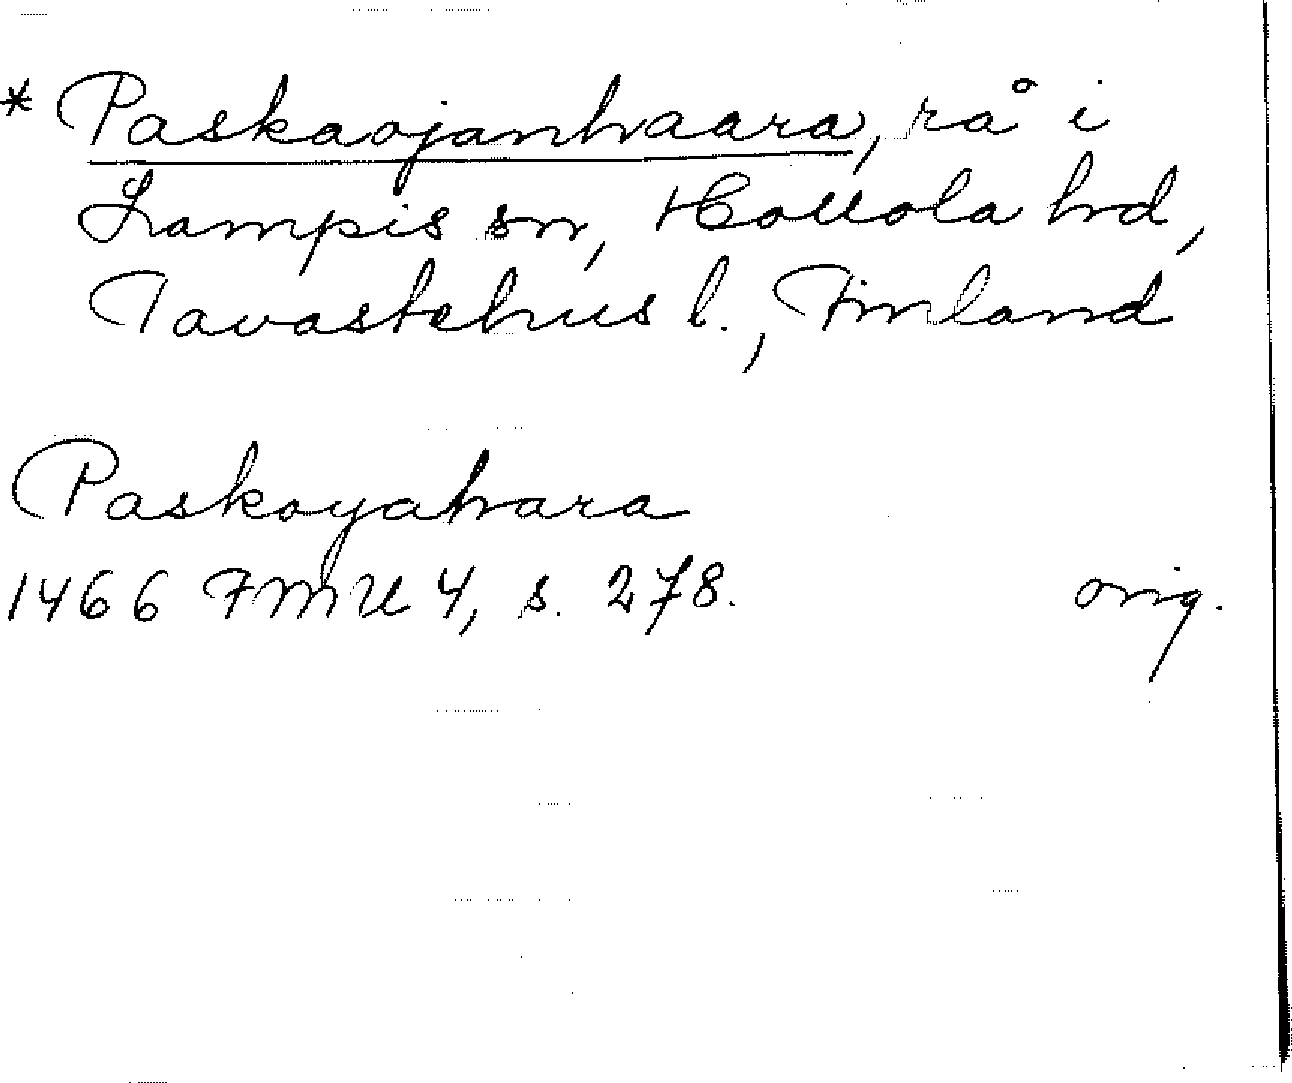 * Paskaojanhaara, rå i
Lampis sn, Hollola hd,
Tavastehus l., Finland
Paskoyahara
1466 FMU 4, s. 278. orig.